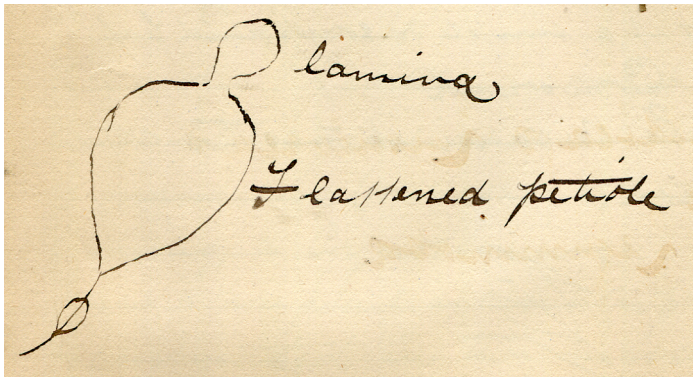 lamina
Flattened petiole